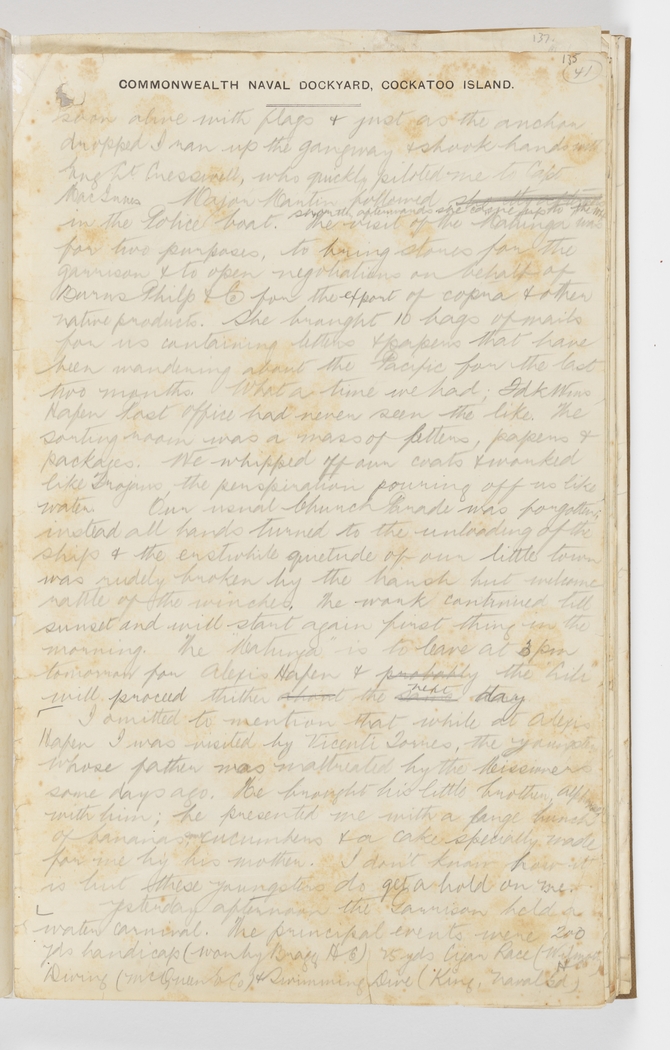 137.
135
(41)
COMMONWEALTH NAVAL DOCKYARD, COCKATOO ISLAND.
soon alive with flags & just as the anchor
dropped I ran up the gangway & shook hands with
Cresswell, who quickly piloted me to Capt
MacInnes Major Martin followed
in the Police boat. The visit of the Matunga was
for two purposes, to bring stores for the
garrison & to open negotiations on behalf of
Burns Philp & Co for the export of copra & other
native products. She brought 10 bags of mails
for us containing letters & papers that have
been wandering about the Pacific for the last
two months. What a time we had; Fdk Wms
Hafen Post Office had never seen the like. The
sorting room was a mass of letters, papers &
packages. We whipped off our coats & worked
like Trojans, the perspiration pouring off us like
water Our usual Church Parade was forgotten
instead all hands turned to the unloading of the
ship & the erstwhile quietude of our little town
was rudely broken by the harsh but welcome
rattle of the winches. The work continued till
sunset and will start again first thing in the
morning. The "Matunga" is to leave at 3 pm
tomorrow for Alexis Hafen & probably the
will proceed thither about the next day
I omitted to mention that while at Alexis
Hafen I was visited by Vicenti Torres, the youngster
whose father was maltreated by the Missioners
some days ago. He brought his little brother,
with him; he presented me with a large bunch
of bananas, cucumbers & a cake specially made
for me by his mother. I don't know how it
is but these youngsters do get a hold on me.
Yesterday afternoon the Garrison held a
water carnival. The principal events were 200
yds handicap (won by Bragg H Co) 75 yds Cigar Race
Diving (McQueen Co) & Swimming Dive (King, Naval)